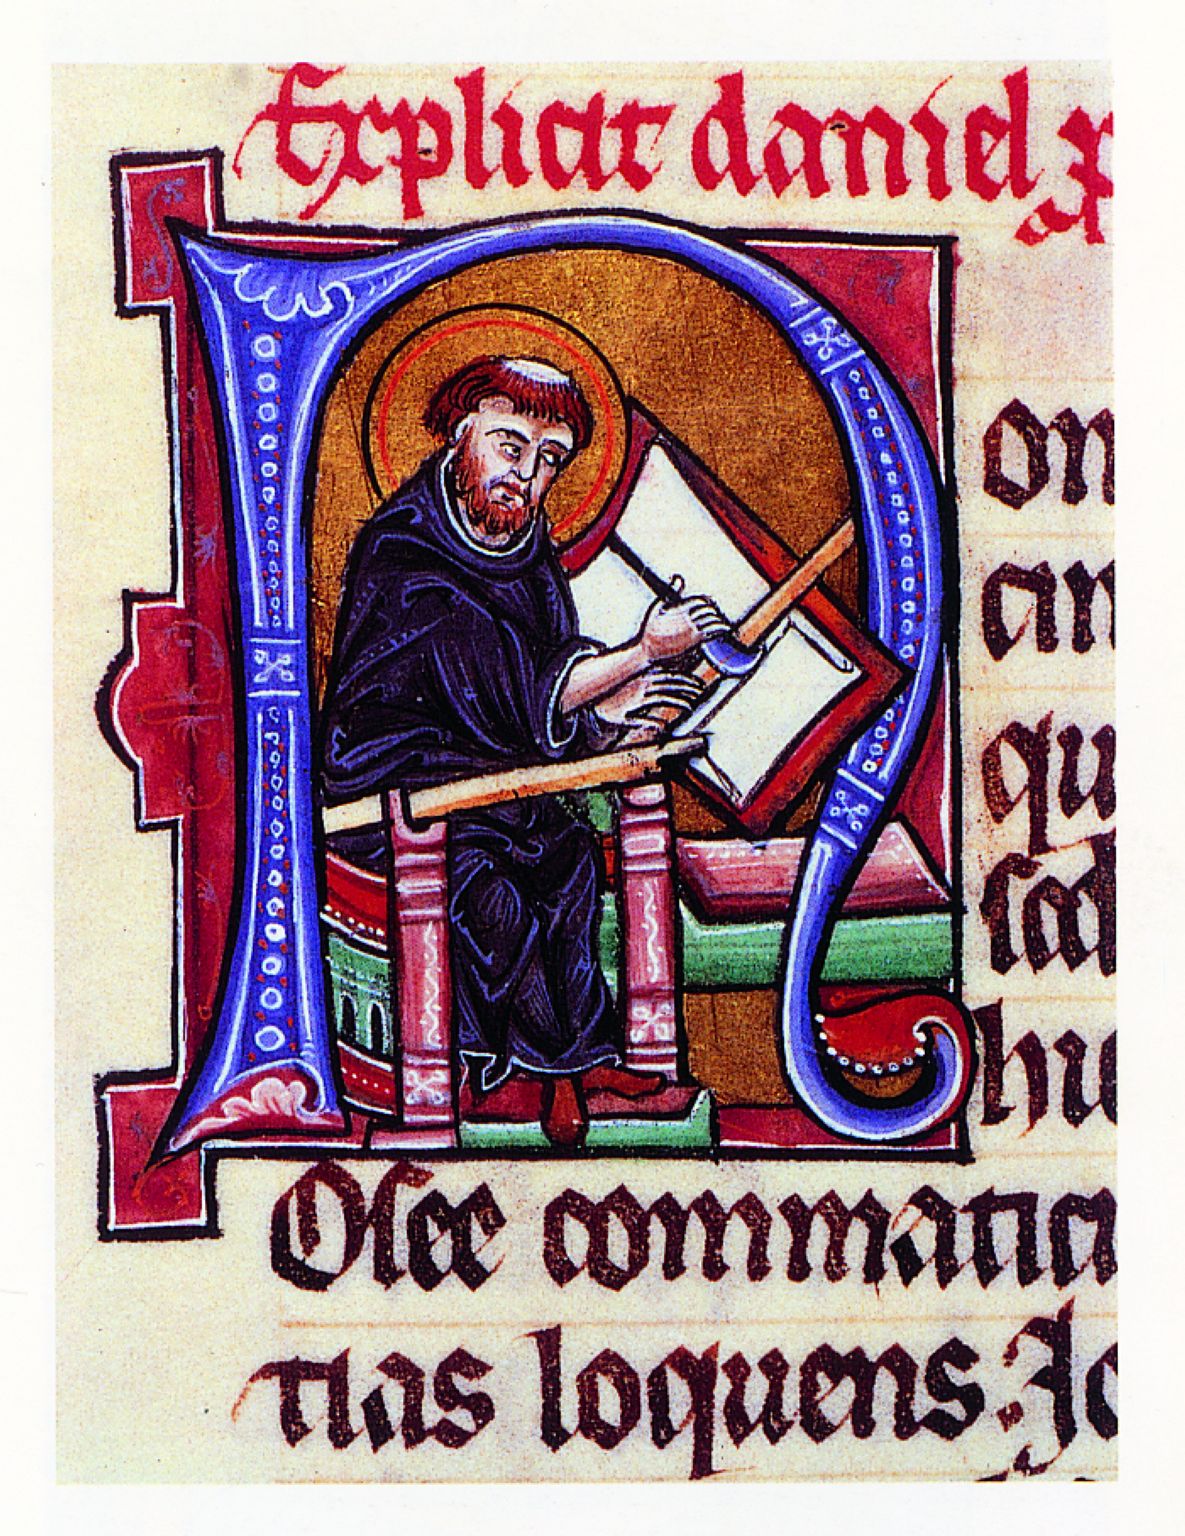 Explicit daniel p
Non
an
qu
hu
Osee commatic
tias loquens. Jo